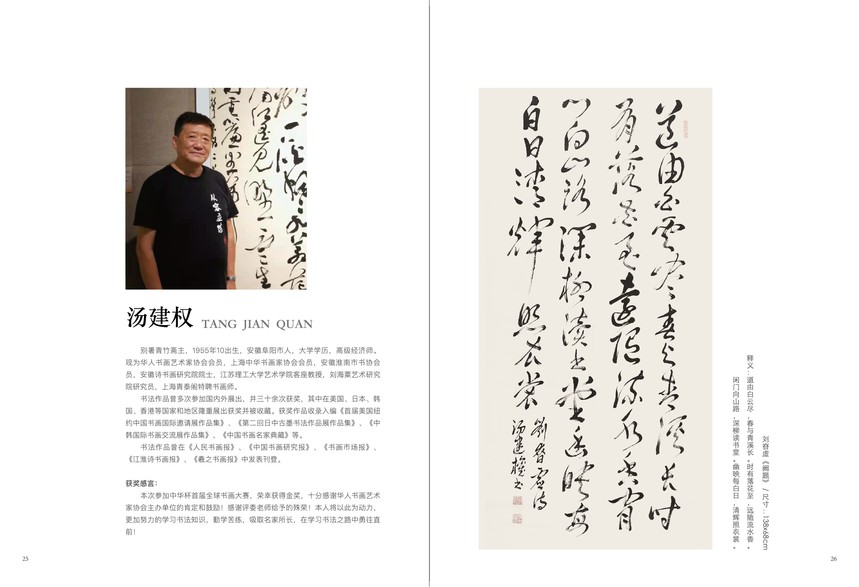 汤建权 TANG JIAN QUAN
别署青竹斋主，1955年10出生，安徽阜阳市人，大学学历，高级经济师。
现为华人书画艺术家协会会员，上海中华书画家协会会员，安徽淮南市书协会
员，安徽诗书画研究院院士，江苏理工大学艺术学院客座教授，刘海粟艺术研究
院研究员，上海青泰阁特聘书画师。
书法作品曾多次参加国内外展出，并三十余次获奖，其中在美国、日本、韩
国、香港等国家和地区隆重展出获奖并被收藏。获奖作品收录入编《首届美国纽
约中国书画国际邀请展作品集》、《第二回日中古墨书法作品展作品集》、《中
韩国际书画交流展作品集》、《中国书画名家典藏》等。
书法作品曾在《人民书画报》、《中国书画研究报》、《书画市场报》、
《江淮诗书画报》、《羲之书画报》中发表刊登。
获奖感言：
本次参加中华杯首届全球书画大赛，荣幸获得金奖，十分感谢华人书画艺术
家协会主办单位的肯定和鼓励！感谢评委老师给予的殊荣！本人将以此为动力，
更加努力的学习书法知识，勤学苦练，吸取名家所长，在学习书法之路中勇往直
前！
25
道由白云尽春与青溪长时
有落花至远随流水香
闲门向山路深柳读书堂幽映每
白日清辉照衣裳
刘眘虚诗
汤建权书
刘眘虚《阙题》 / 尺寸：138x68cm
释义：道由白云尽，春与青溪长。时有落花至，远随流水香。
闲门向山路，深柳读书堂。幽映每白日，清辉照衣裳。
26